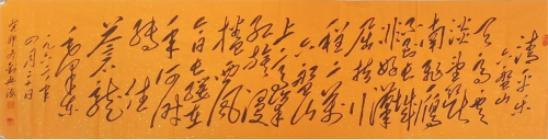 清平乐
六盘山
天高云
淡望断
南飞雁
不到长城
非好漢
屈指行
程二万
六盘山
上高峰
红旗漫
捲西风
今日长缨在
手何时
缚住
苍龙
毛泽东
一九六一年